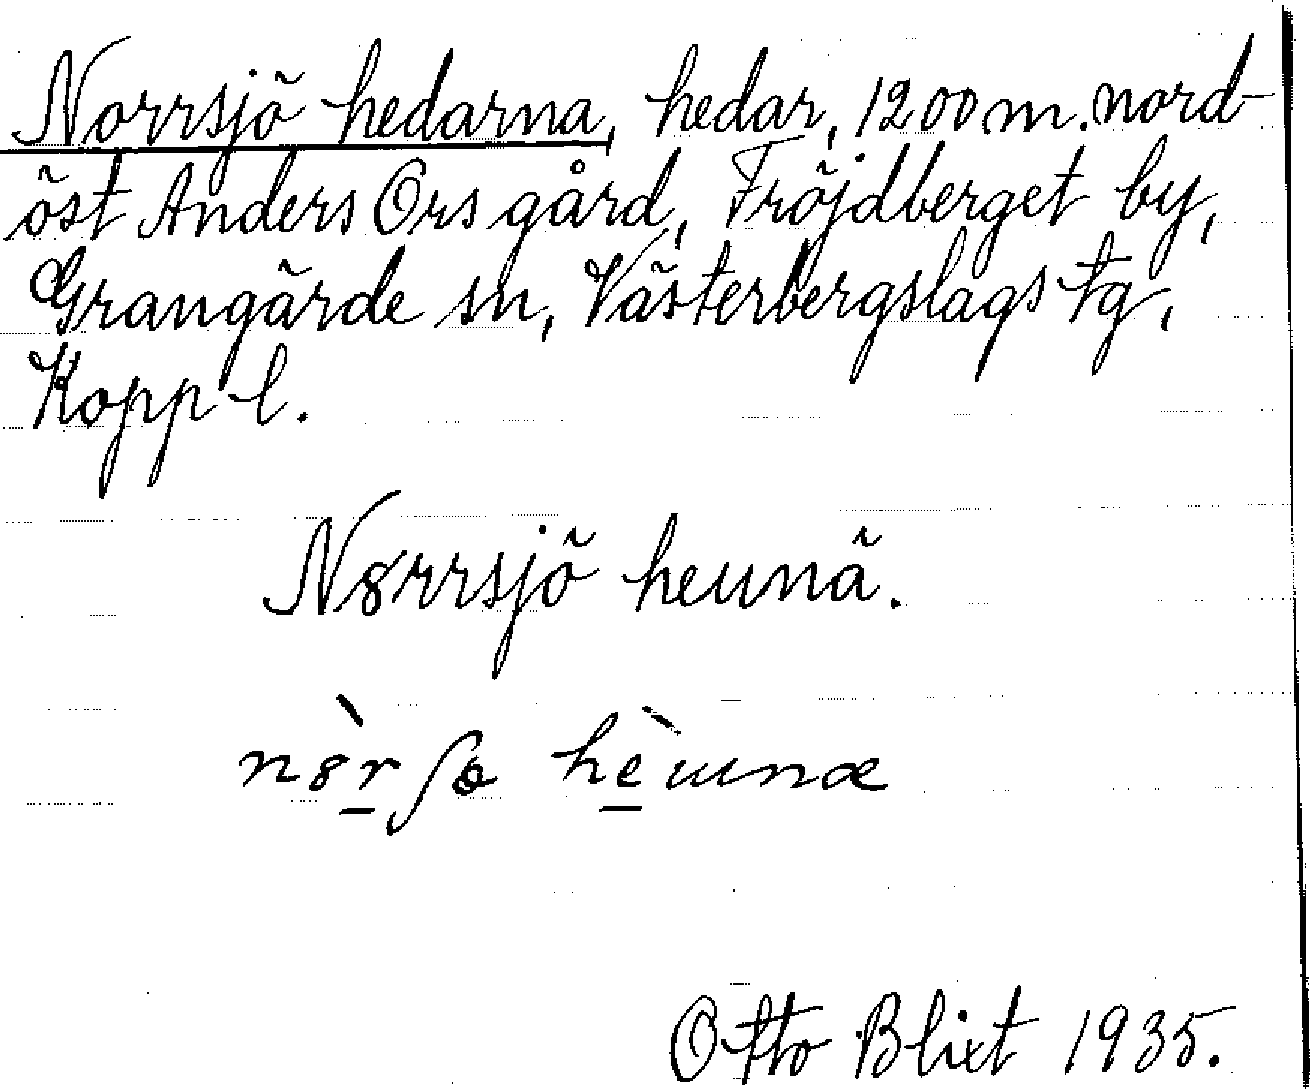 Norrsjö hedarna, hedar, 1200 m. nord-
öst Anders Ors gård, Fröjdberget by,
Grangärde sn, Västerbergslags tg,
Kopp-l.
N8rrsjö heunä.
Otto Blixt 1935.